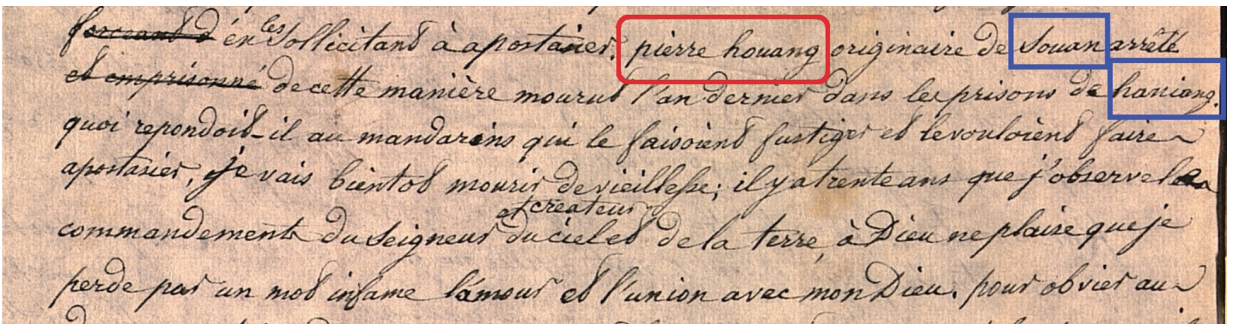 forceant d én les sollicitant à apostasier. pierre houang originaire de Souan arrêté
et emprisonné de cette manière mourut l'an dernier dans les prisons de haniang.
quoi repondoit-il au mandarins qui le faisoient fustiger et le vouloient faire
apostasier, je vais bientot mourir de vieillesse; il y a trente ans que j'observe les
commandements du seigneur et createur du ciel et de la terre, à Dieu ne plaise que je
perde par un mot infame l'amour et l'union avec mon Dieu. pour obvier au